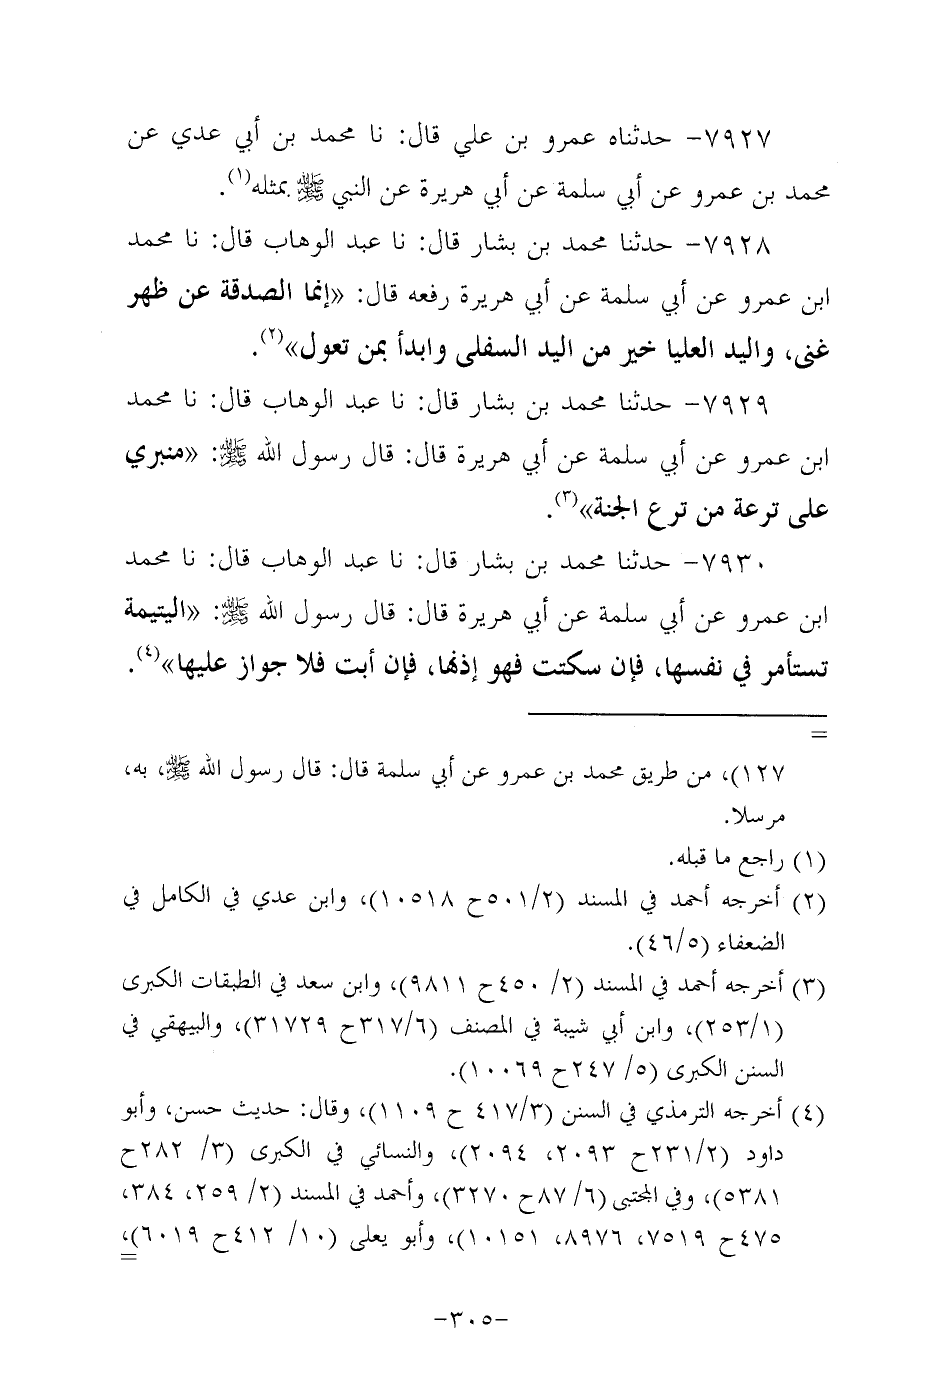 ٧٩٢٧- حدثناه عمرو بن علي قال: نا محمد بن أبي عدي عن
محمد بن عمرو عن أبي سلمة عن أبي هريرة عن النبي ﷺ بمثله(١).
٧٩٢٨- حدثنا محمد بن بشار قال: نا عبد الوهاب قال: نا محمد
ابن عمرو عن أبي سلمة عن أبي هريرة رفعه قال: «إنما الصدقة عن ظهر
غنى، واليد العليا خير من اليد السفلى وابدأ بمن تعول»(٢).
٧٩٢٩- حدثنا محمد بن بشار قال: نا عبد الوهاب قال: نا محمد
ابن عمرو عن أبي سلمة عن أبي هريرة قال: قال رسول الله ﷺ: «منبري
على ترعة من ترع الجنة»(٣).
٧٩٣٠- حدثنا محمد بن بشار قال: نا عبد الوهاب قال: نا محمد
ابن عمرو عن أبي سلمة عن أبي هريرة قال: قال رسول الله ﷺ: «اليتيمة
تستأمر في نفسها، فإن سكتت فهو إذنها، فإن أبت فلا جواز عليها»(٤).
=
١٢٧)، من طريق محمد بن عمرو عن أبي سلمة قال: قال رسول الله ﷺ، به،
مرسلا.
(١) راجع ما قبله.
(٢) أخرجه أحمد في المسند (٥٠١/٢ح ١٠٥١٨)، وابن عدي في الكامل في
الضعفاء (٤٦/٥).
(٣) أخرجه أحمد في المسند (٢/ ٤٥٠ح ٩٨١١)، وابن سعد في الطبقات الكبرى
(٢٥٣/١)، وابن أبي شيبة في المصنف (٣١٧/٦ح ٣١٧٢٩)، والبيهقي في
السنن الكبرى (٥/ ٢٤٧ح ١٠٠٦٩).
(٤) أخرجه الترمذي في السنن (٤١٧/٣ ح ١١٠٩)، وقال: حديث حسن، وأبو
داود (٢٣١/٢ح ٢٠٩٣، ٢٠٩٤)، والنسائي في الكبرى (٣/ ٢٨٢ح
٥٣٨١)، وفي المجتبى (٦/ ٨٧ح ٣٢٧٠)، وأحمد في المسند (٢/ ٢٥٩، ٣٨٤،
٤٧٥ح ٧٥١٩، ٨٩٧٦، ١٠١٥١)، وأبو يعلى (١٠/ ٤١٢ح ٦٠١٩)،
=
-٣٠٥-